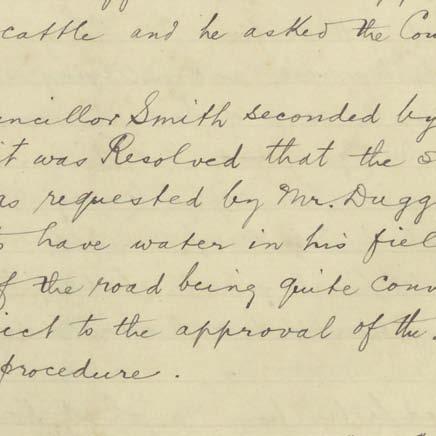 cattle and he asked the Cou
ncillor Smith seconded by
it was Resolved that the s
as requested by Mr. Dugg
to have water in his fiel
of the road being quite conv
ject to the approval of the
procedure.